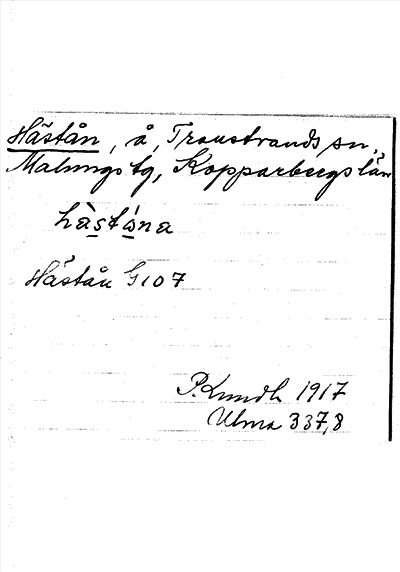 Hästån, å, Transtrands sn,
Malungs tg, Kopparbergs län
häståna
Hästån G107
1917
Ulma 337,8